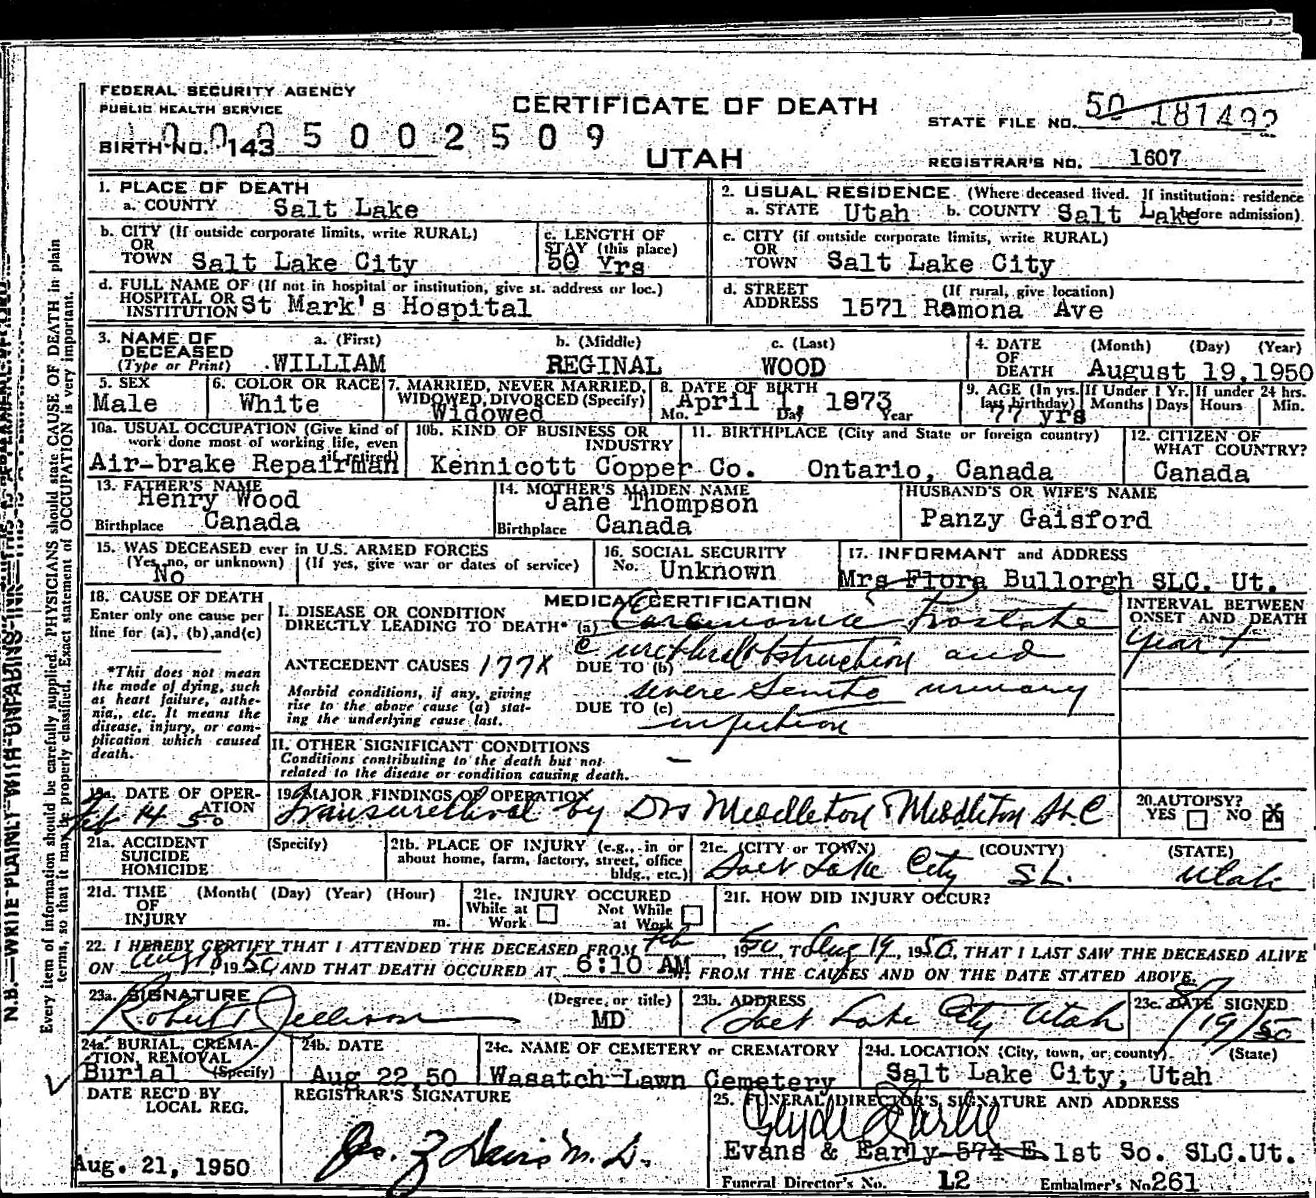 FEDERAL SECURITY AGENCY
PUBLIC HEALTH SERVICE
CERTIFICATE OF DEATH
STATE FILE NO. 50 181492
BIRTH NO. 143 5002509
UTAH
REGISTRAR'S NO. 1607
1. PLACE OF DEATH
a. COUNTY Salt Lake
2. USUAL RESIDENCE. (Where deceased lived. If institution: residence before admission)
a. STATE Utah b. COUNTY Salt Lake
b. CITY (If outside corporate limits, write RURAL)
OR
TOWN Salt Lake City
c. LENGTH OF
STAY (this place)
50 Yrs
c. CITY (if outside corporate limits, write RURAL)
OR
TOWN Salt Lake City
d. FULL NAME OF (If not in hospital or institution, give st. address or loc.)
HOSPITAL OR
INSTITUTION St Mark's Hospital
d. STREET (If rural, give location)
ADDRESS 1571 Ramona Ave
3. NAME OF a. (First) b. (Middle) c. (Last)
DECEASED
(Type or Print) WILLIAM REGINAL WOOD
4. DATE (Month) (Day) (Year)
OF
DEATH August 19, 1950
5. SEX
Male
6. COLOR OR RACE
White
7. MARRIED, NEVER MARRIED,
WIDOWED, DIVORCED (Specify)
Widowed
8. DATE OF BIRTH
April 1 1873
Mo. Day Year
9. AGE (In yrs. last birthday) If Under 1 Yr. If under 24 hrs.
Months Days Hours Min.
77 yrs
10a. USUAL OCCUPATION (Give kind of
work done most of working life, even
if retired)
Air-brake Repairman
10b. KIND OF BUSINESS OR
INDUSTRY
Kennicott Copper Co.
11. BIRTHPLACE (City and State or foreign country)
Ontario, Canada
12. CITIZEN OF
WHAT COUNTRY?
Canada
13. FATHER'S NAME
Henry Wood
Birthplace Canada
14. MOTHER'S MAIDEN NAME
Jane Thompson
Birthplace Canada
HUSBAND'S OR WIFE'S NAME
Panzy Gaisford
15. WAS DECEASED ever in U.S. ARMED FORCES
(Yes, no, or unknown) (If yes, give war or dates of service)
No
16. SOCIAL SECURITY
No. Unknown
17. INFORMANT and ADDRESS
Mrs Flora Bullorgh SLC. Ut.
18. CAUSE OF DEATH
Enter only one cause per
line for (a), (b), and (c)
*This does not mean
the mode of dying, such
as heart failure, asthe-
nia, etc. It means the
disease, injury, or com-
plication which caused
death.
MEDICAL CERTIFICATION
INTERVAL BETWEEN
ONSET AND DEATH
I. DISEASE OR CONDITION
DIRECTLY LEADING TO DEATH* (a) Carcinomia Prostate
year +
ANTECEDENT CAUSES 177X DUE TO (b) c urethral obstruction and
Morbid conditions, if any, giving
rise to the above cause (a) stat-
ing the underlying cause last.
DUE TO (c) severe Genito urinary
infection
II. OTHER SIGNIFICANT CONDITIONS
Conditions contributing to the death but not
related to the disease or condition causing death. —
19a. DATE OF OPER-
ATION
Feb 14 50
19b. MAJOR FINDINGS OF OPERATION
Transurethral by Drs Middleton & Middleton SLC
20. AUTOPSY?
YES NO X
21a. ACCIDENT (Specify)
SUICIDE
HOMICIDE
21b. PLACE OF INJURY (e.g., in or
about home, farm, factory, street, office
bldg., etc.)
21c. (CITY or TOWN) (COUNTY) (STATE)
Salt Lake City S.L. Utah
21d. TIME (Month) (Day) (Year) (Hour)
OF
INJURY m.
21e. INJURY OCCURED
While at Not While
Work at Work
21f. HOW DID INJURY OCCUR?
22. I HEREBY CERTIFY THAT I ATTENDED THE DECEASED FROM Feb, 1950, TO Aug 19, 1950, THAT I LAST SAW THE DECEASED ALIVE
ON Aug 18 1950 AND THAT DEATH OCCURED AT 6:10 AM FROM THE CAUSES AND ON THE DATE STATED ABOVE.
23a. SIGNATURE (Degree, or title)
Robert Jellison MD
23b. ADDRESS
Salt Lake City Utah
23c. DATE SIGNED
8/19/50
24a. BURIAL, CREMA-
TION, REMOVAL
(Specify)
Burial
24b. DATE
Aug 22, 50
24c. NAME OF CEMETERY or CREMATORY
Wasatch Lawn Cemetery
24d. LOCATION (City, town, or county) (State)
Salt Lake City, Utah
DATE REC'D BY
LOCAL REG.
Aug. 21, 1950
REGISTRAR'S SIGNATURE
25. FUNERAL DIRECTOR'S SIGNATURE AND ADDRESS
Evans & Early 574 E. 1st So. SLC. Ut.
Funeral Director's No. L2 Embalmer's No 261
N.B.—WRITE PLAINLY WITH UNFADING INK—THIS IS A PERMANENT RECORD
Every item of information should be carefully supplied. PHYSICIANS should state CAUSE OF DEATH in plain
terms, so that it may be properly classified. Exact statement of OCCUPATION is very important.